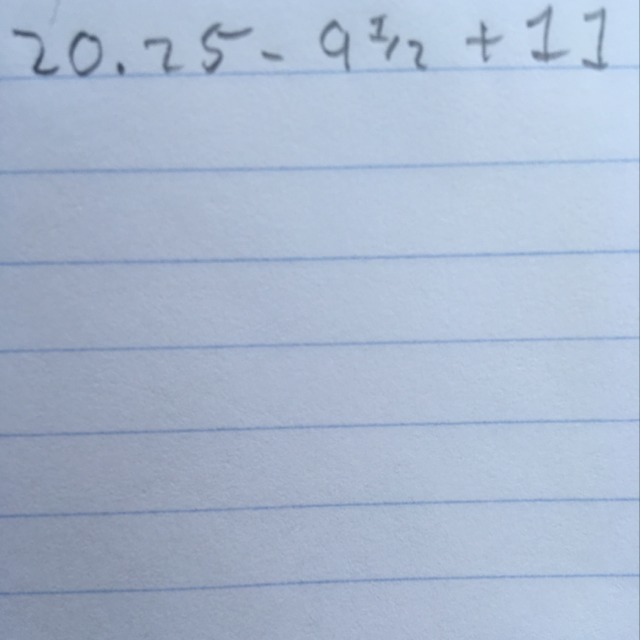 20.25 - 9 1/2 + 11